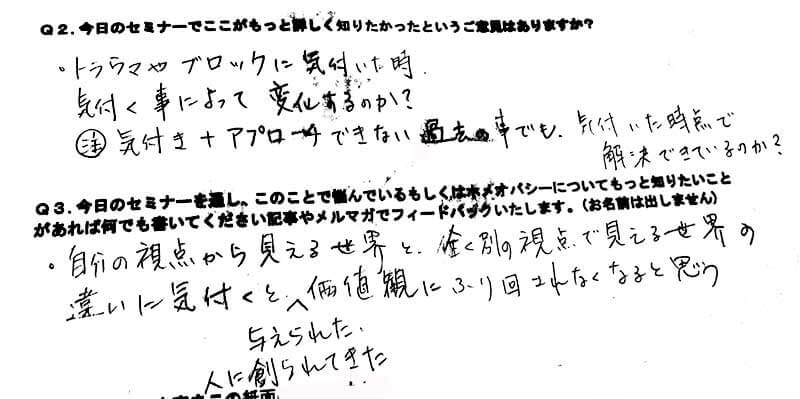 Q2.今日のセミナーでここがもっと詳しく知りたかったというご意見はありますか?
・トラウマやブロックに気付いた時、
気付く事によって変化するのか?
㊟気付き+アプローチできない過去の事でも、気付いた時点で
解決できているのか?
Q3.今日のセミナーを通し、このことで悩んでいるもしくはホメオパシーについてもっと知りたいこと
があれば何でも書いてください記事やメルマガでフィードバックいたします。(お名前は出しません)
・自分の視点から見える世界と、全く別の視点で見える世界の
違いに気付くと、価値観にふり回されなくなると思う
与えられた、
人に創られてきた